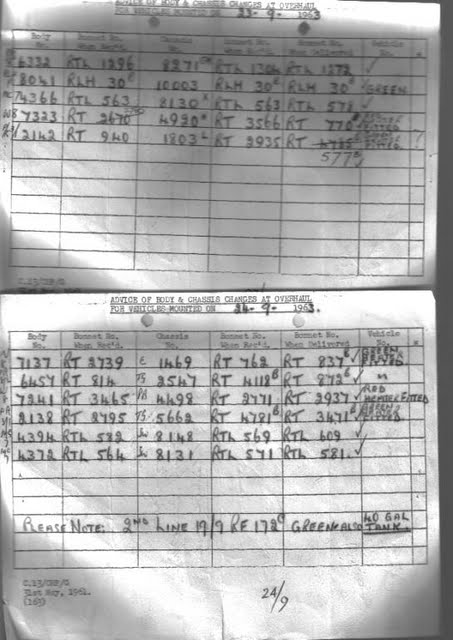 ADVICE OF BODY & CHASSIS CHANGES AT OVERHAUL
FOR VEHICLES MOUNTED ON 23-9- 1963
Body No. Bonnet No. When Rec'd. Chassis No. Bonnet No. When Rec'd. Bonnet No. When Delivered Vehicle No. *
6332 RTL 1296 8271 RTL 1304 RTL 1272 ✓
8041 RLH 30 10003 RLH 30 RLH 30 ✓ GREEN
74366 RTL 563 8130 RTL 563 RTL 578 ✓
7323 RT 2670 4930 RT 3566 RT 770 FITTED
2142 RT 940 1803 L RT 2935 RT FITTED
577 ✓
C.13/CHP/G
ADVICE OF BODY & CHASSIS CHANGES AT OVERHAUL
FOR VEHICLES MOUNTED ON 24-9- 1963
Body No. Bonnet No. When Rec'd. Chassis No. Bonnet No. When Rec'd. Bonnet No. When Delivered Vehicle No. *
7137 RT 2739 1469 RT 762 RT 837 ✓ GREEN
6457 RT 814 2547 RT 4112 RT 872 ✓ "
7241 RT 3465 4498 RT 2771 RT 2937 ✓ RED HEATER FITTED
2138 RT 2795 5662 RT 4781 RT 3471 ✓ GREEN FITTED
4394 RTL 582 8148 RTL 569 RTL 609 ✓
4372 RTL 564 8131 RTL 571 RTL 581 ✓
PLEASE NOTE: 2ND LINE 19/9 RF 172 GREEN ALSO 40 GAL TANK.
C.13/CHP/G
31st May, 1961.
(163)
24/9